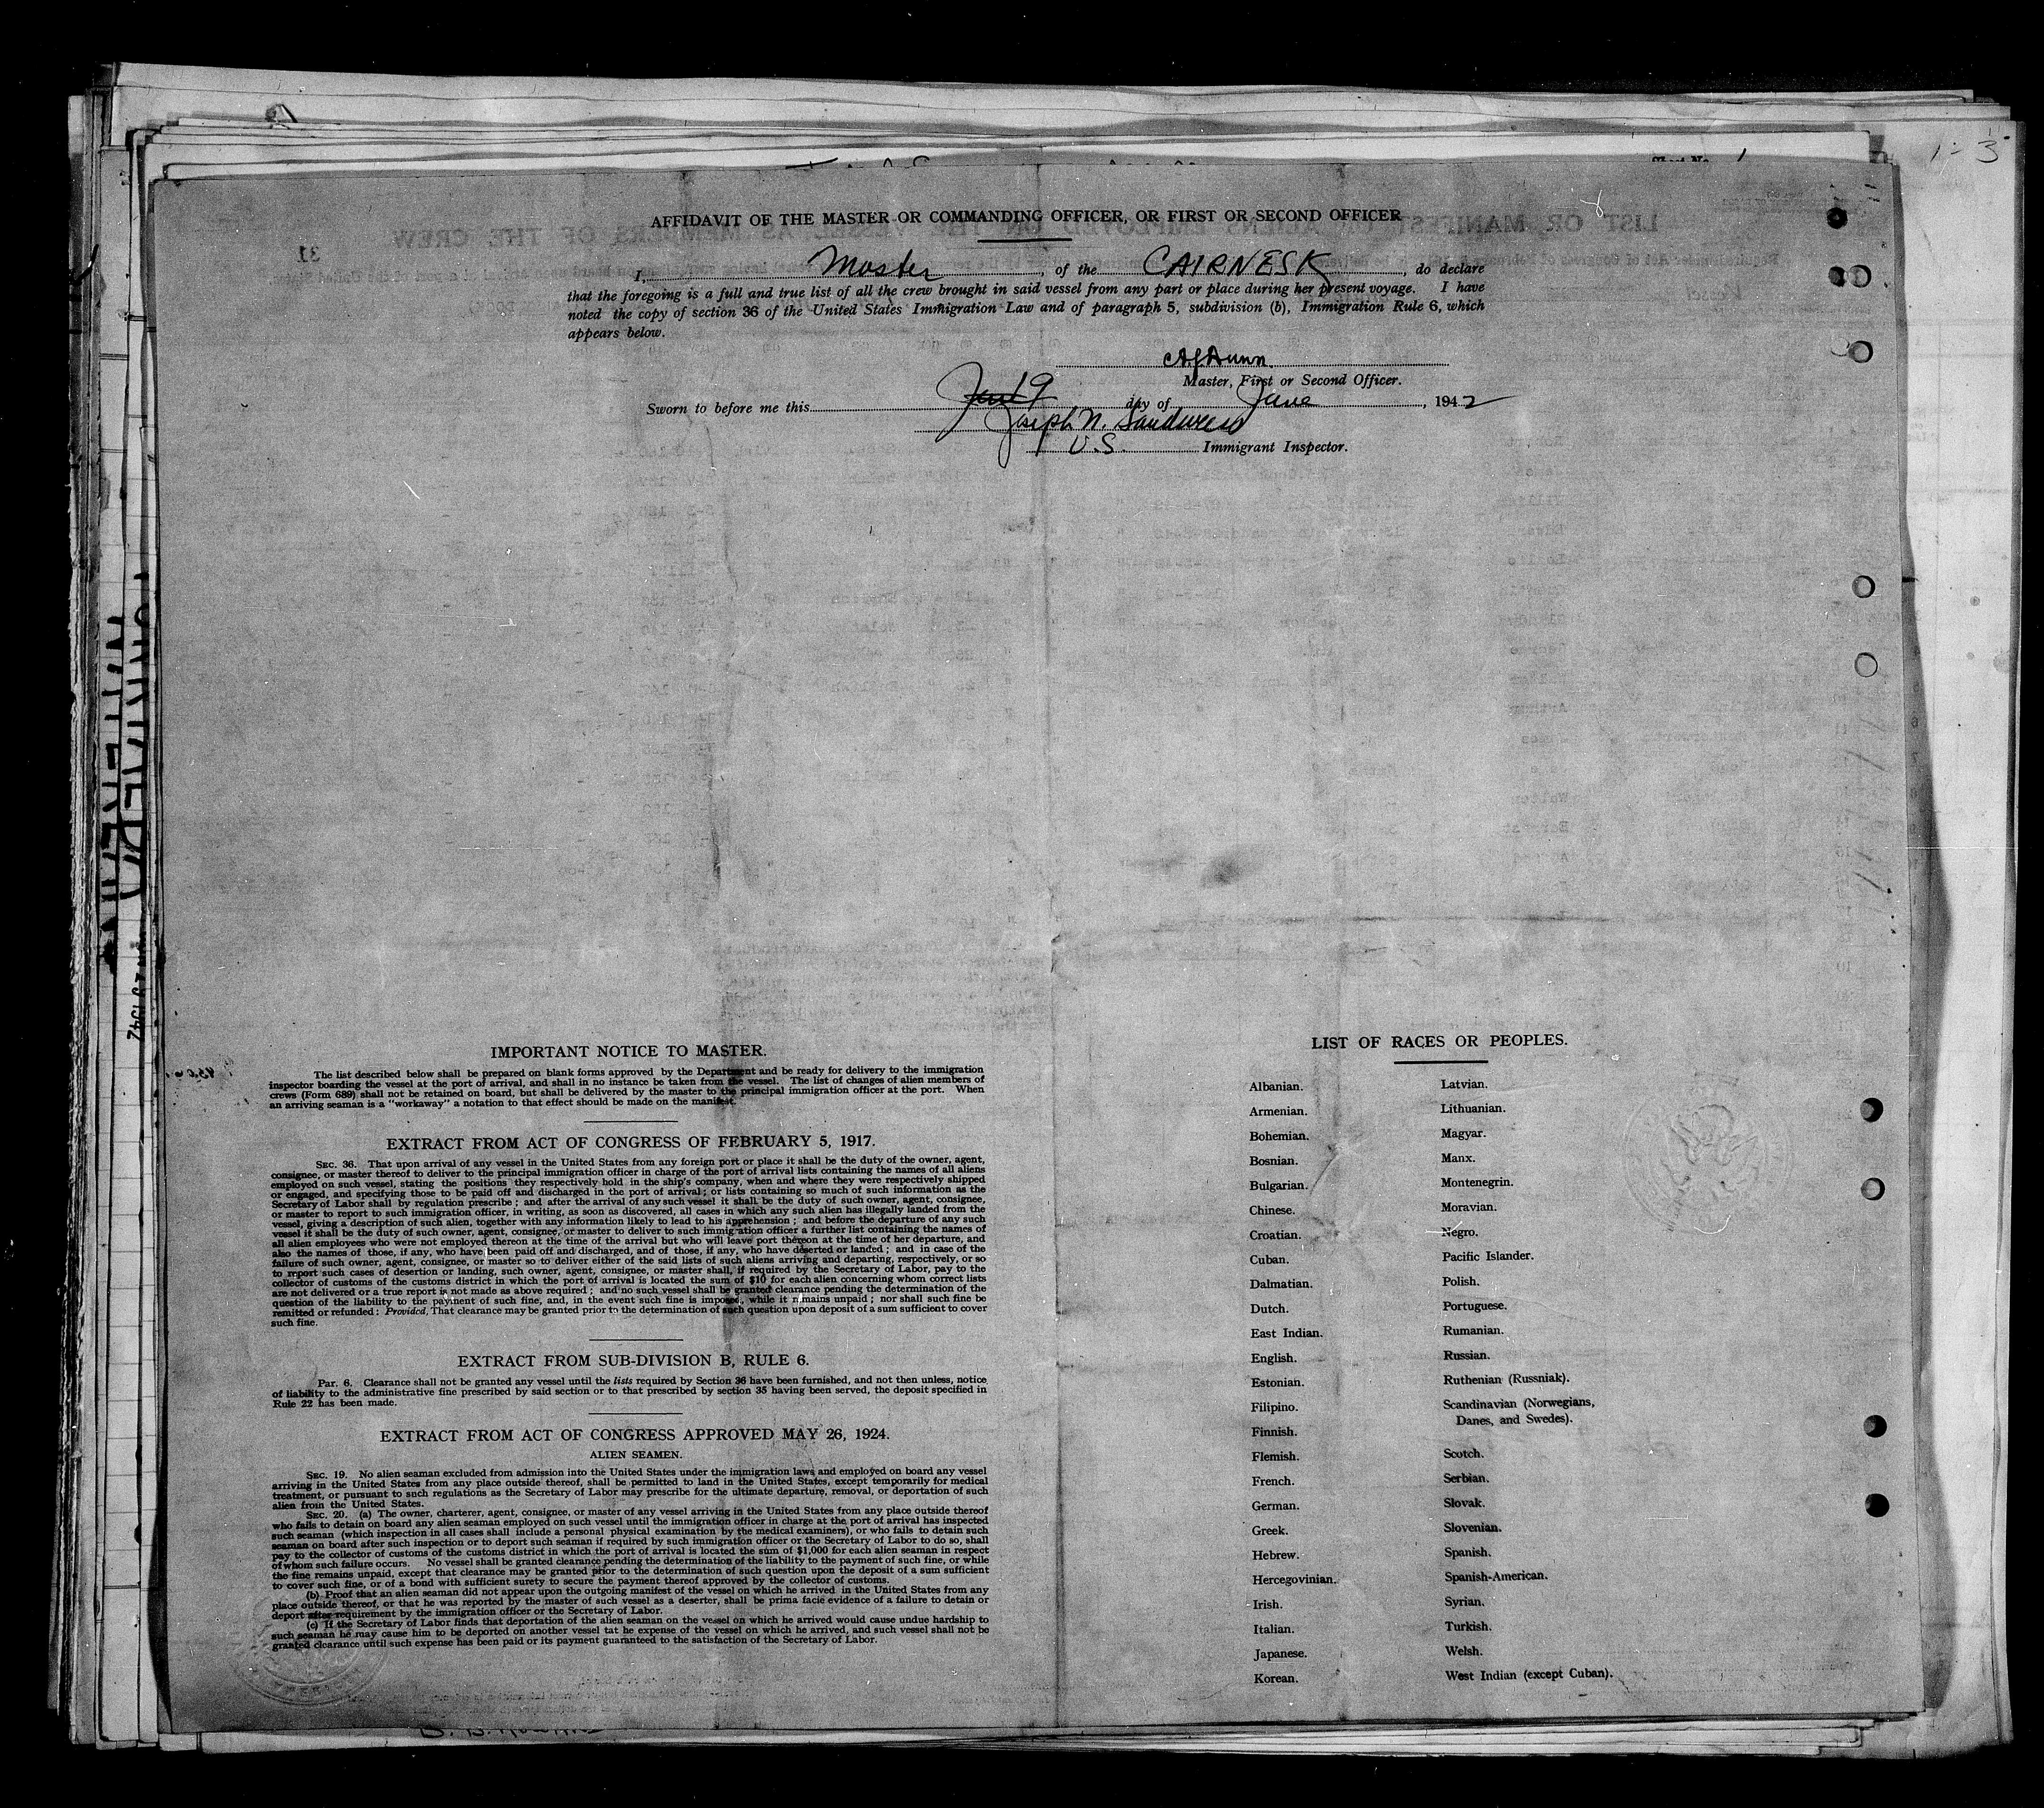 1-3
8
AFFIDAVIT OF THE MASTER OR COMMANDING OFFICER, OR FIRST OR SECOND OFFICER
I, Master, of the CAIRNESK, do declare
that the foregoing is a full and true list of all the crew brought in said vessel from any part or place during her present voyage. I have
noted the copy of section 36 of the United States Immigration Law and of paragraph 5, subdivision (b), Immigration Rule 6, which
appears below.
Master, First or Second Officer.
Sworn to before me this 19 day of June, 1942
Joseph N.
U.S. Immigrant Inspector.
IMPORTANT NOTICE TO MASTER.
The list described below shall be prepared on blank forms approved by the Department and be ready for delivery to the immigration
inspector boarding the vessel at the port of arrival, and shall in no instance be taken from the vessel. The list of changes of alien members of
crews (Form 689) shall not be retained on board, but shall be delivered by the master to the principal immigration officer at the port. When
an arriving seaman is a "workaway" a notation to that effect should be made on the manifest.
EXTRACT FROM ACT OF CONGRESS OF FEBRUARY 5, 1917.
SEC. 36. That upon arrival of any vessel in the United States from any foreign port or place it shall be the duty of the owner, agent,
consignee, or master thereof to deliver to the principal immigration officer in charge of the port of arrival lists containing the names of all aliens
employed on such vessel, stating the positions they respectively hold in the ship's company, when and where they were respectively shipped
or engaged, and specifying those to be paid off and discharged in the port of arrival; or lists containing so much of such information as the
Secretary of Labor shall by regulation prescribe; and after the arrival of any such vessel it shall be the duty of such owner, agent, consignee,
or master to report to such immigration officer, in writing, as soon as discovered, all cases in which any such alien has illegally landed from the
vessel, giving a description of such alien, together with any information likely to lead to his apprehension; and before the departure of any such
vessel it shall be the duty of such owner, agent, consignee, or master to deliver to such immigration officer a further list containing the names of
all alien employees who were not employed thereon at the time of the arrival but who will leave port thereon at the time of her departure, and
also the names of those, if any, who have been paid off and discharged, and of those, if any, who have deserted or landed; and in case of the
failure of such owner, agent, consignee, or master so to deliver either of the said lists of such aliens arriving and departing, respectively, or so
to report such cases of desertion or landing, such owner, agent, consignee, or master shall, if required by the Secretary of Labor, pay to the
collector of customs of the customs district in which the port of arrival is located the sum of $10 for each alien concerning whom correct lists
are not delivered or a true report is not made as above required; and no such vessel shall be granted clearance pending the determination of the
question of the liability to the payment of such fine, and, in the event such fine is imposed, while it remains unpaid; nor shall such fine be
remitted or refunded: Provided, That clearance may be granted prior to the determination of such question upon deposit of a sum sufficient to cover
such fine.
EXTRACT FROM SUB-DIVISION B, RULE 6.
PAR. 6. Clearance shall not be granted any vessel until the lists required by Section 36 have been furnished, and not then unless, notice
of liability to the administrative fine prescribed by said section or to that prescribed by section 35 having been served, the deposit specified in
Rule 22 has been made.
EXTRACT FROM ACT OF CONGRESS APPROVED MAY 26, 1924.
ALIEN SEAMEN.
SEC. 19. No alien seaman excluded from admission into the United States under the immigration laws and employed on board any vessel
arriving in the United States from any place outside thereof, shall be permitted to land in the United States, except temporarily for medical
treatment, or pursuant to such regulations as the Secretary of Labor may prescribe for the ultimate departure, removal, or deportation of such
alien from the United States.
SEC. 20. (a) The owner, charterer, agent, consignee, or master of any vessel arriving in the United States from any place outside thereof
who fails to detain on board any alien seaman employed on such vessel until the immigration officer in charge at the port of arrival has inspected
such seaman (which inspection in all cases shall include a personal physical examination by the medical examiners), or who fails to detain such
seaman on board after such inspection or to deport such seaman if required by such immigration officer or the Secretary of Labor to do so, shall
pay to the collector of customs of the customs district in which the port of arrival is located the sum of $1,000 for each alien seaman in respect
of whom such failure occurs. No vessel shall be granted clearance pending the determination of the liability to the payment of such fine, or while
the fine remains unpaid, except that clearance may be granted prior to the determination of such question upon the deposit of a sum sufficient
to cover such fine, or of a bond with sufficient surety to secure the payment thereof approved by the collector of customs.
(b) Proof that an alien seaman did not appear upon the outgoing manifest of the vessel on which he arrived in the United States from any
place outside thereof, or that he was reported by the master of such vessel as a deserter, shall be prima facie evidence of a failure to detain or
deport after requirement by the immigration officer or the Secretary of Labor.
(c) If the Secretary of Labor finds that deportation of the alien seaman on the vessel on which he arrived would cause undue hardship to
such seaman he may cause him to be deported on another vessel tat he expense of the vessel on which he arrived, and such vessel shall not be
granted clearance until such expense has been paid or its payment guaranteed to the satisfaction of the Secretary of Labor.
LIST OF RACES OR PEOPLES.
Albanian.
Armenian.
Bohemian.
Bosnian.
Bulgarian.
Chinese.
Croatian.
Cuban.
Dalmatian.
Dutch.
East Indian.
English.
Estonian.
Filipino.
Finnish.
Flemish.
French.
German.
Greek.
Hebrew.
Hercegovinian.
Irish.
Italian.
Japanese.
Korean.
Latvian.
Lithuanian.
Magyar.
Manx.
Montenegrin.
Moravian.
Negro.
Pacific Islander.
Polish.
Portuguese.
Rumanian.
Russian.
Ruthenian (Russniak).
Scandinavian (Norwegians,
Danes, and Swedes).
Scotch.
Serbian.
Slovak.
Slovenian.
Spanish.
Spanish-American.
Syrian.
Turkish.
Welsh.
West Indian (except Cuban).